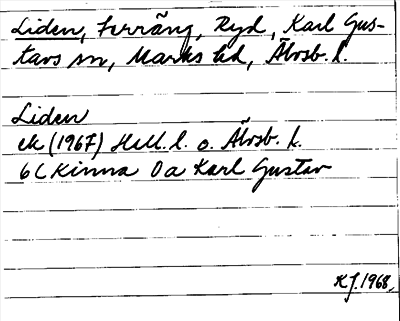 Liden, Terräng, Ryd, Karl Gus-
tavs sn, Marks hd, Älvsb. l.
Liden
ek (1967) Hall. l. o. Älvsb. l.
6C Kinna 0a Karl Gustav
KJ. 1968,